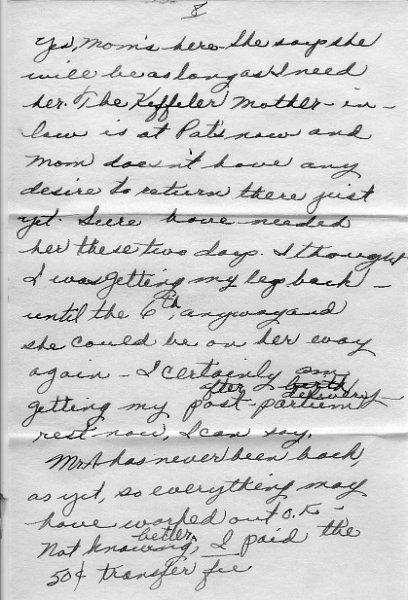 8
Yes, Mom's here. She says she
will be as long as I need
her. The Keffeler Mother-in-
law is at Pat's now and
Mom doesn't have any
desire to return there just
yet. Sure have needed
her these two days. I thought
I was getting my leg back -
until the 6th, anyway and
she could be on her way
again - I certainly am
after birth delivery -
getting my post-partum
rest now, I can say.
Mr A has never been back,
as yet, so everything may
have worked out o.k. -
Not knowing better, I paid the
50¢ transfer fee